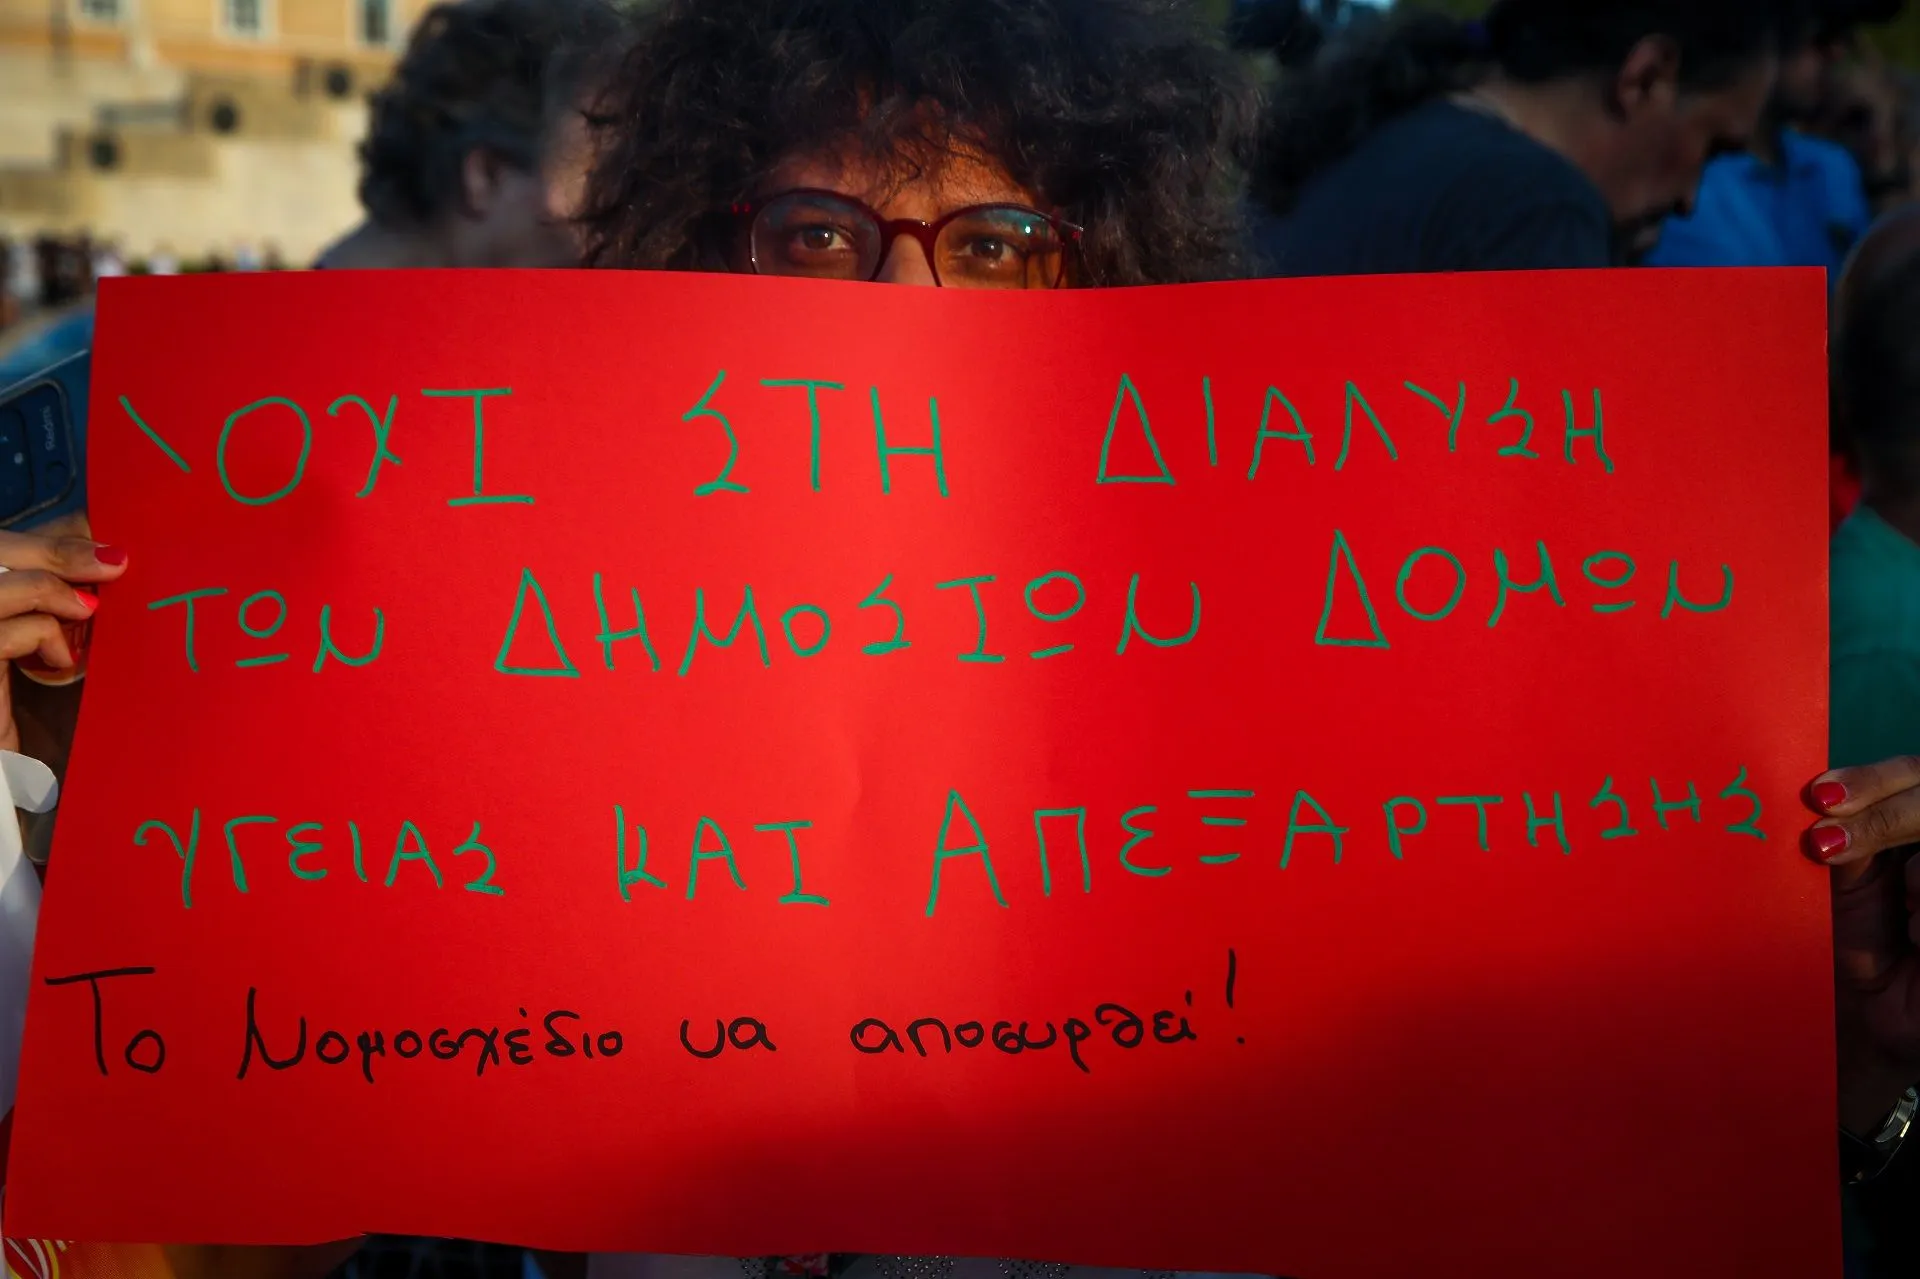 ΌΧΙ ΣΤΗ ΔΙΑΛΥΣΗ
ΤΩΝ ΔΗΜΟΣΙΩΝ ΔΟΜΩΝ
ΥΓΕΙΑΣ ΚΑΙ ΑΠΕΞΑΡΤΗΣΗΣ
Το Νομοσχέδιο να αποσυρθεί!
Redmi